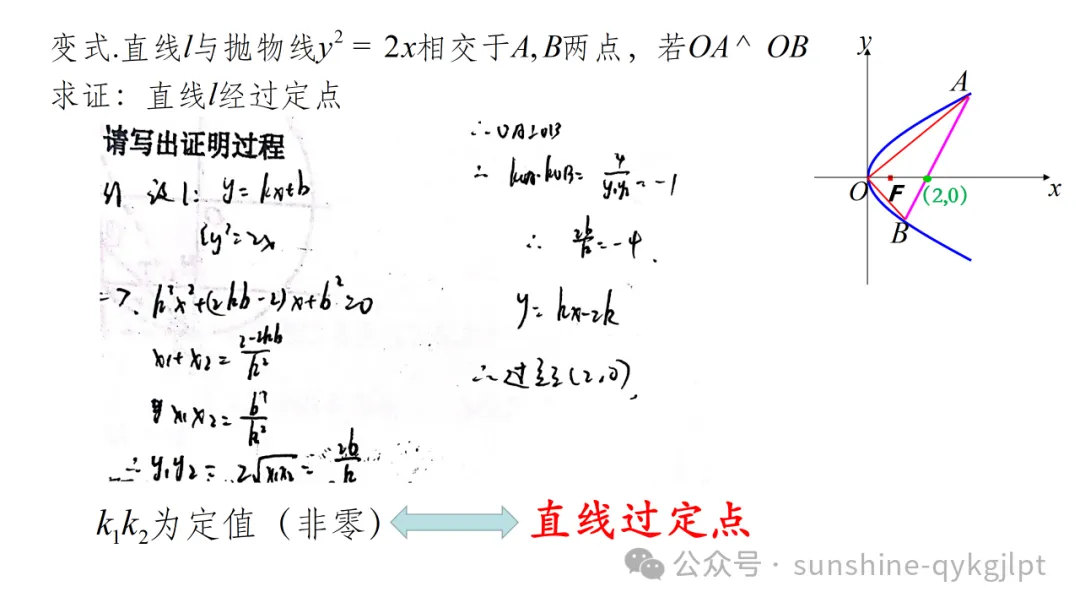 变式.直线l与抛物线y² = 2x相交于A,B两点，若OA^ OB
求证：直线l经过定点
请写出证明过程
设l: y=kx+b
{y²=2x
=> k²x²+(2kb-2)x+b²=0
x₁+x₂=\frac{2-2kb}{k²}
x₁x₂=\frac{b²}{k²}
∴y₁y₂=2√x₁x₂=\frac{2b}{k}
∴OA⊥OB
∴k_{OA}·k_{OB}=\frac{4}{y₁y₂}=-1
∴\frac{2b}{k}=-4.
y=kx-2k
∴过定点(2,0).
y
A
O
F
(2,0)
x
B
k₁k₂为定值（非零）
直线过定点
公众号 · sunshine-qykgjlpt